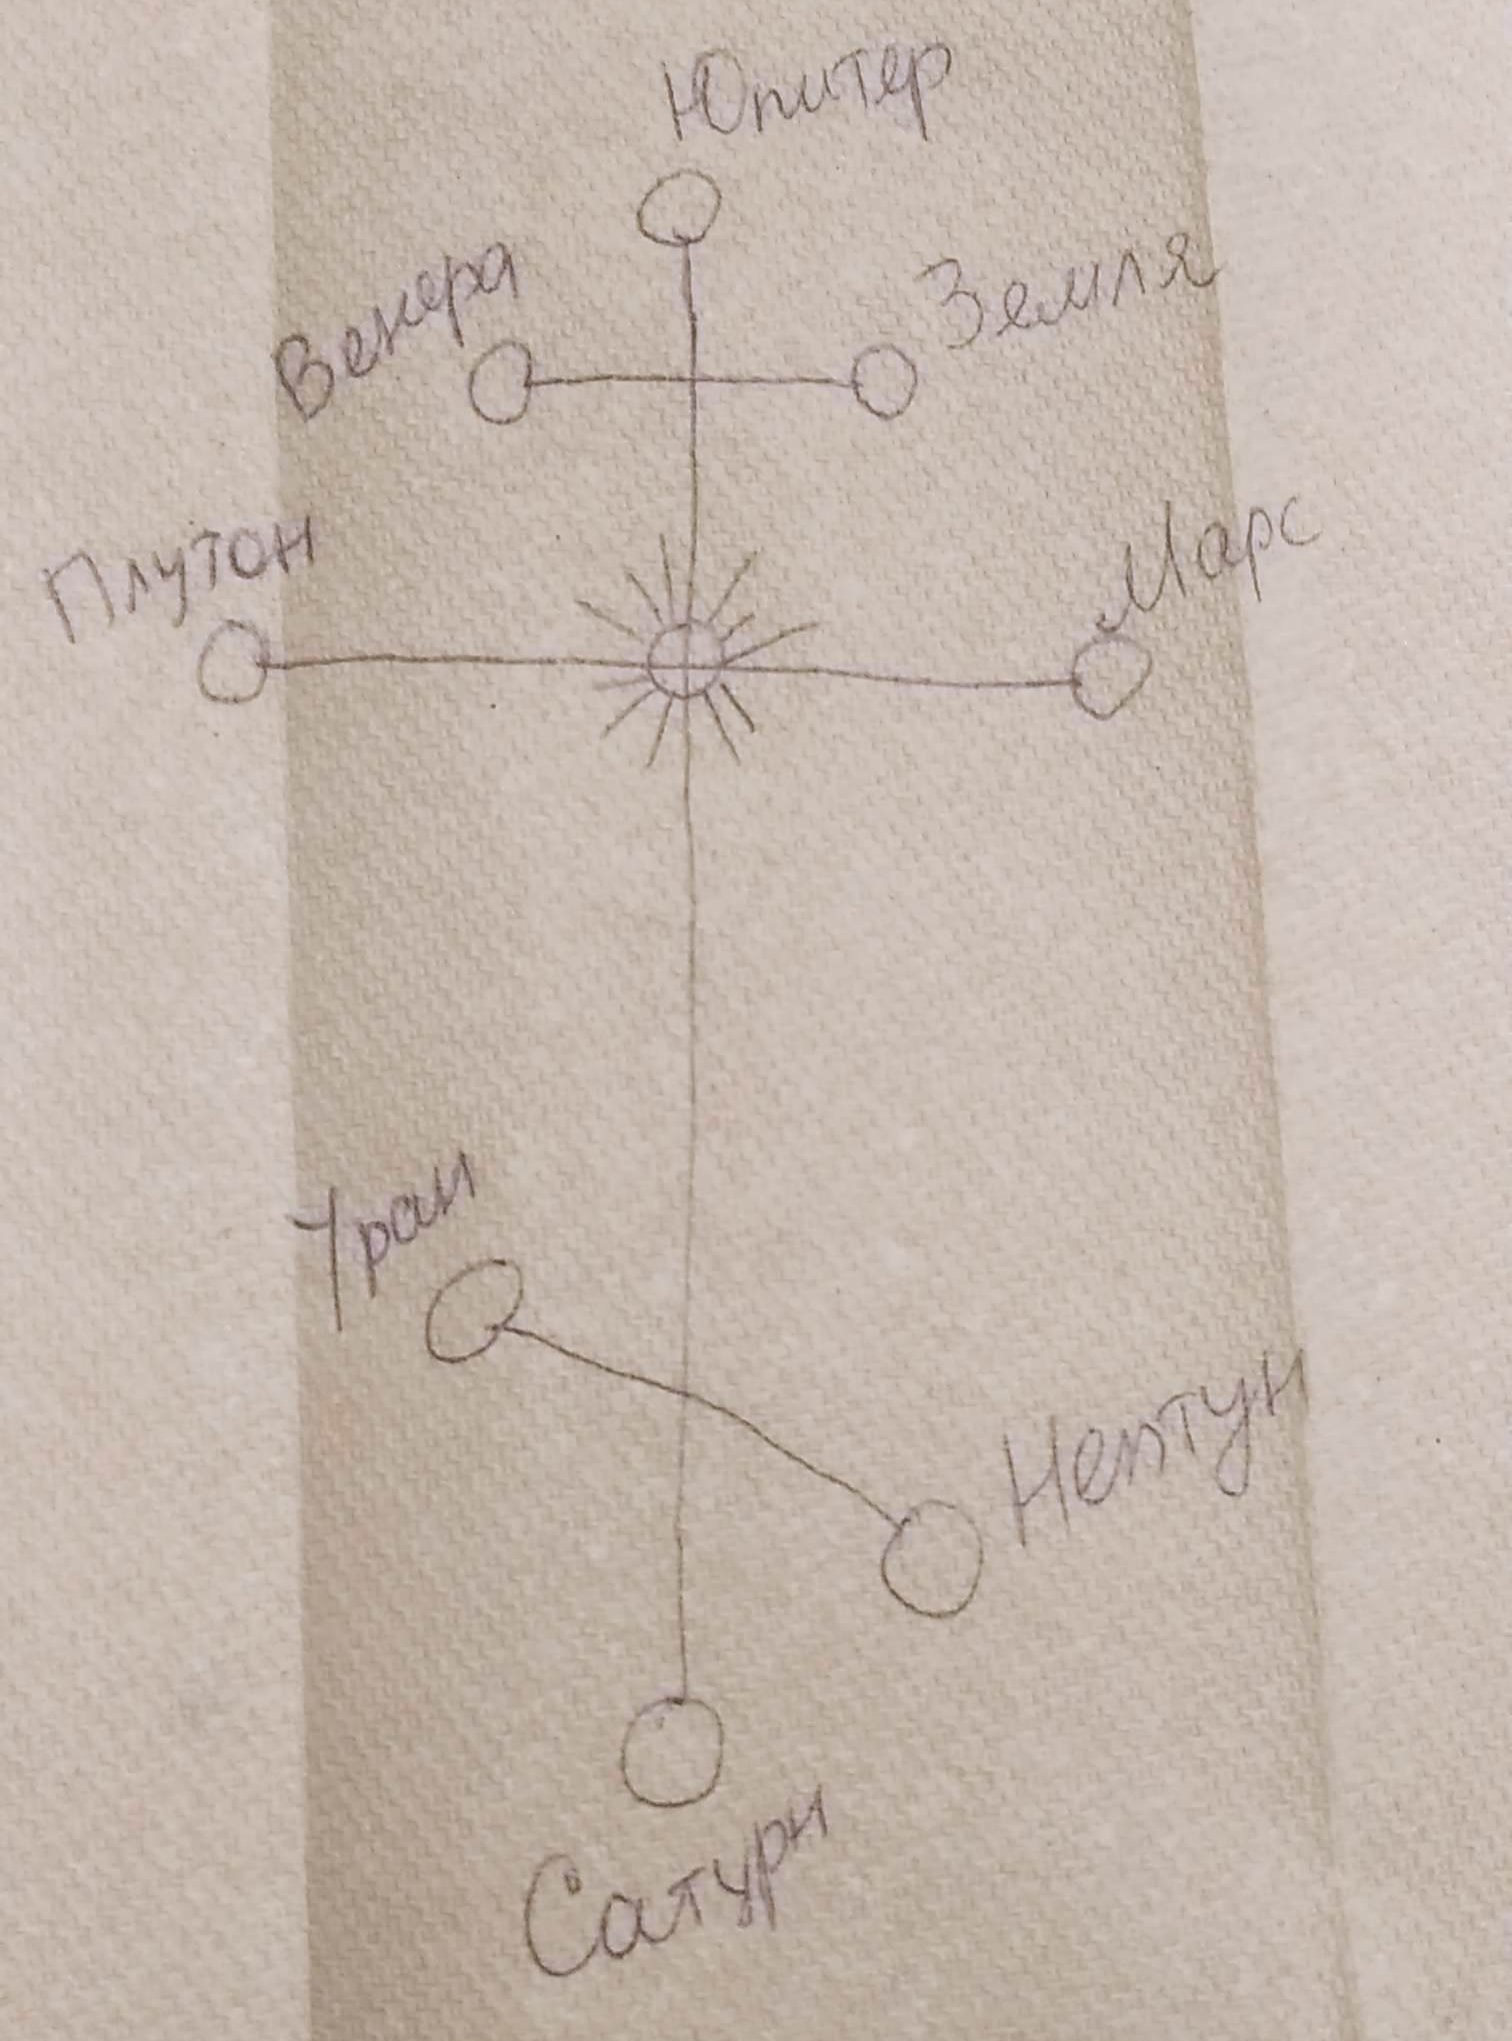 Юпитер
Венера
Земля
Плутон
Марс
Уран
Нептун
Сатурн